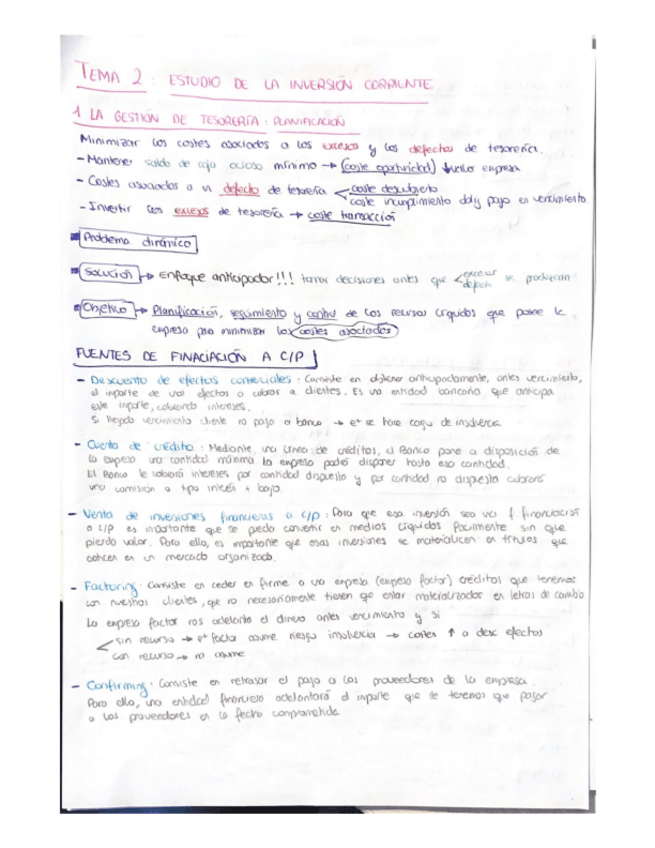 TEMA 2 : ESTUDIO DE LA INVERSIÓN CORRIENTE
1 LA GESTIÓN DE TESORERÍA : PLANIFICACIÓN
Minimizar los costes asociados a los excesos y los defectos de tesorería.
- Mantener saldo de caja ocioso mínimo → (coste oportunidad) ↓ valor empresa
- Costes asociados a un defecto de tesorería < coste descubierto
coste incumplimiento pago en vencimiento
- Invertir los excesos de tesorería → coste transacción
Problema dinámico
Solución → Enfoque anticipador!!! tomar decisiones antes que < exceso defecto se produzcan
Objetivo → Planificación, seguimiento y control de los recursos líquidos que posee la
empresa para minimizar los costes asociados
FUENTES DE FINACIACIÓN A C/P
- Descuento de efectos comerciales : Consiste en obtener anticipadamente, antes vencimiento,
el importe de unos efectos a cobrar a clientes. Es una entidad bancaria que anticipa
este importe, cobrando intereses.
Si llegado vencimiento cliente no paga a banco → eª se hace cargo de insolvencia
- Cuenta de crédito : Mediante una línea de créditos, el Banco pone a disposición de
la empresa una cantidad máxima la empresa podrá disponer hasta esa cantidad.
El Banco le cobrará intereses por cantidad dispuesta y por cantidad no dispuesta cobrará
una comisión a tipo interés + bajo.
- Venta de inversiones financieras a c/p : Para que esa inversión sea una f financiación
a c/p es importante que se pueda convertir en medios líquidos fácilmente sin que
pierda valor. Para ello, es importante que esas inversiones se materialicen en títulos que
coticen en un mercado organizado.
- Factoring : Consiste en ceder en firme a una empresa (empresa factor) créditos que tenemos
con nuestros clientes, que no necesariamente tienen que estar materializados en letras de cambio
La empresa factor nos adelanta el dinero antes vencimiento y si
< sin recurso → eª facto asume riesgo insolvencia → costes ↑ a desc efectos
con recurso → no asume
- Confirming : Consiste en retrasar el pago a los proveedores de la empresa.
Para ello, una entidad financiera adelantará el importe que le tenemos que pagar
a los proveedores en la fecha comprometida